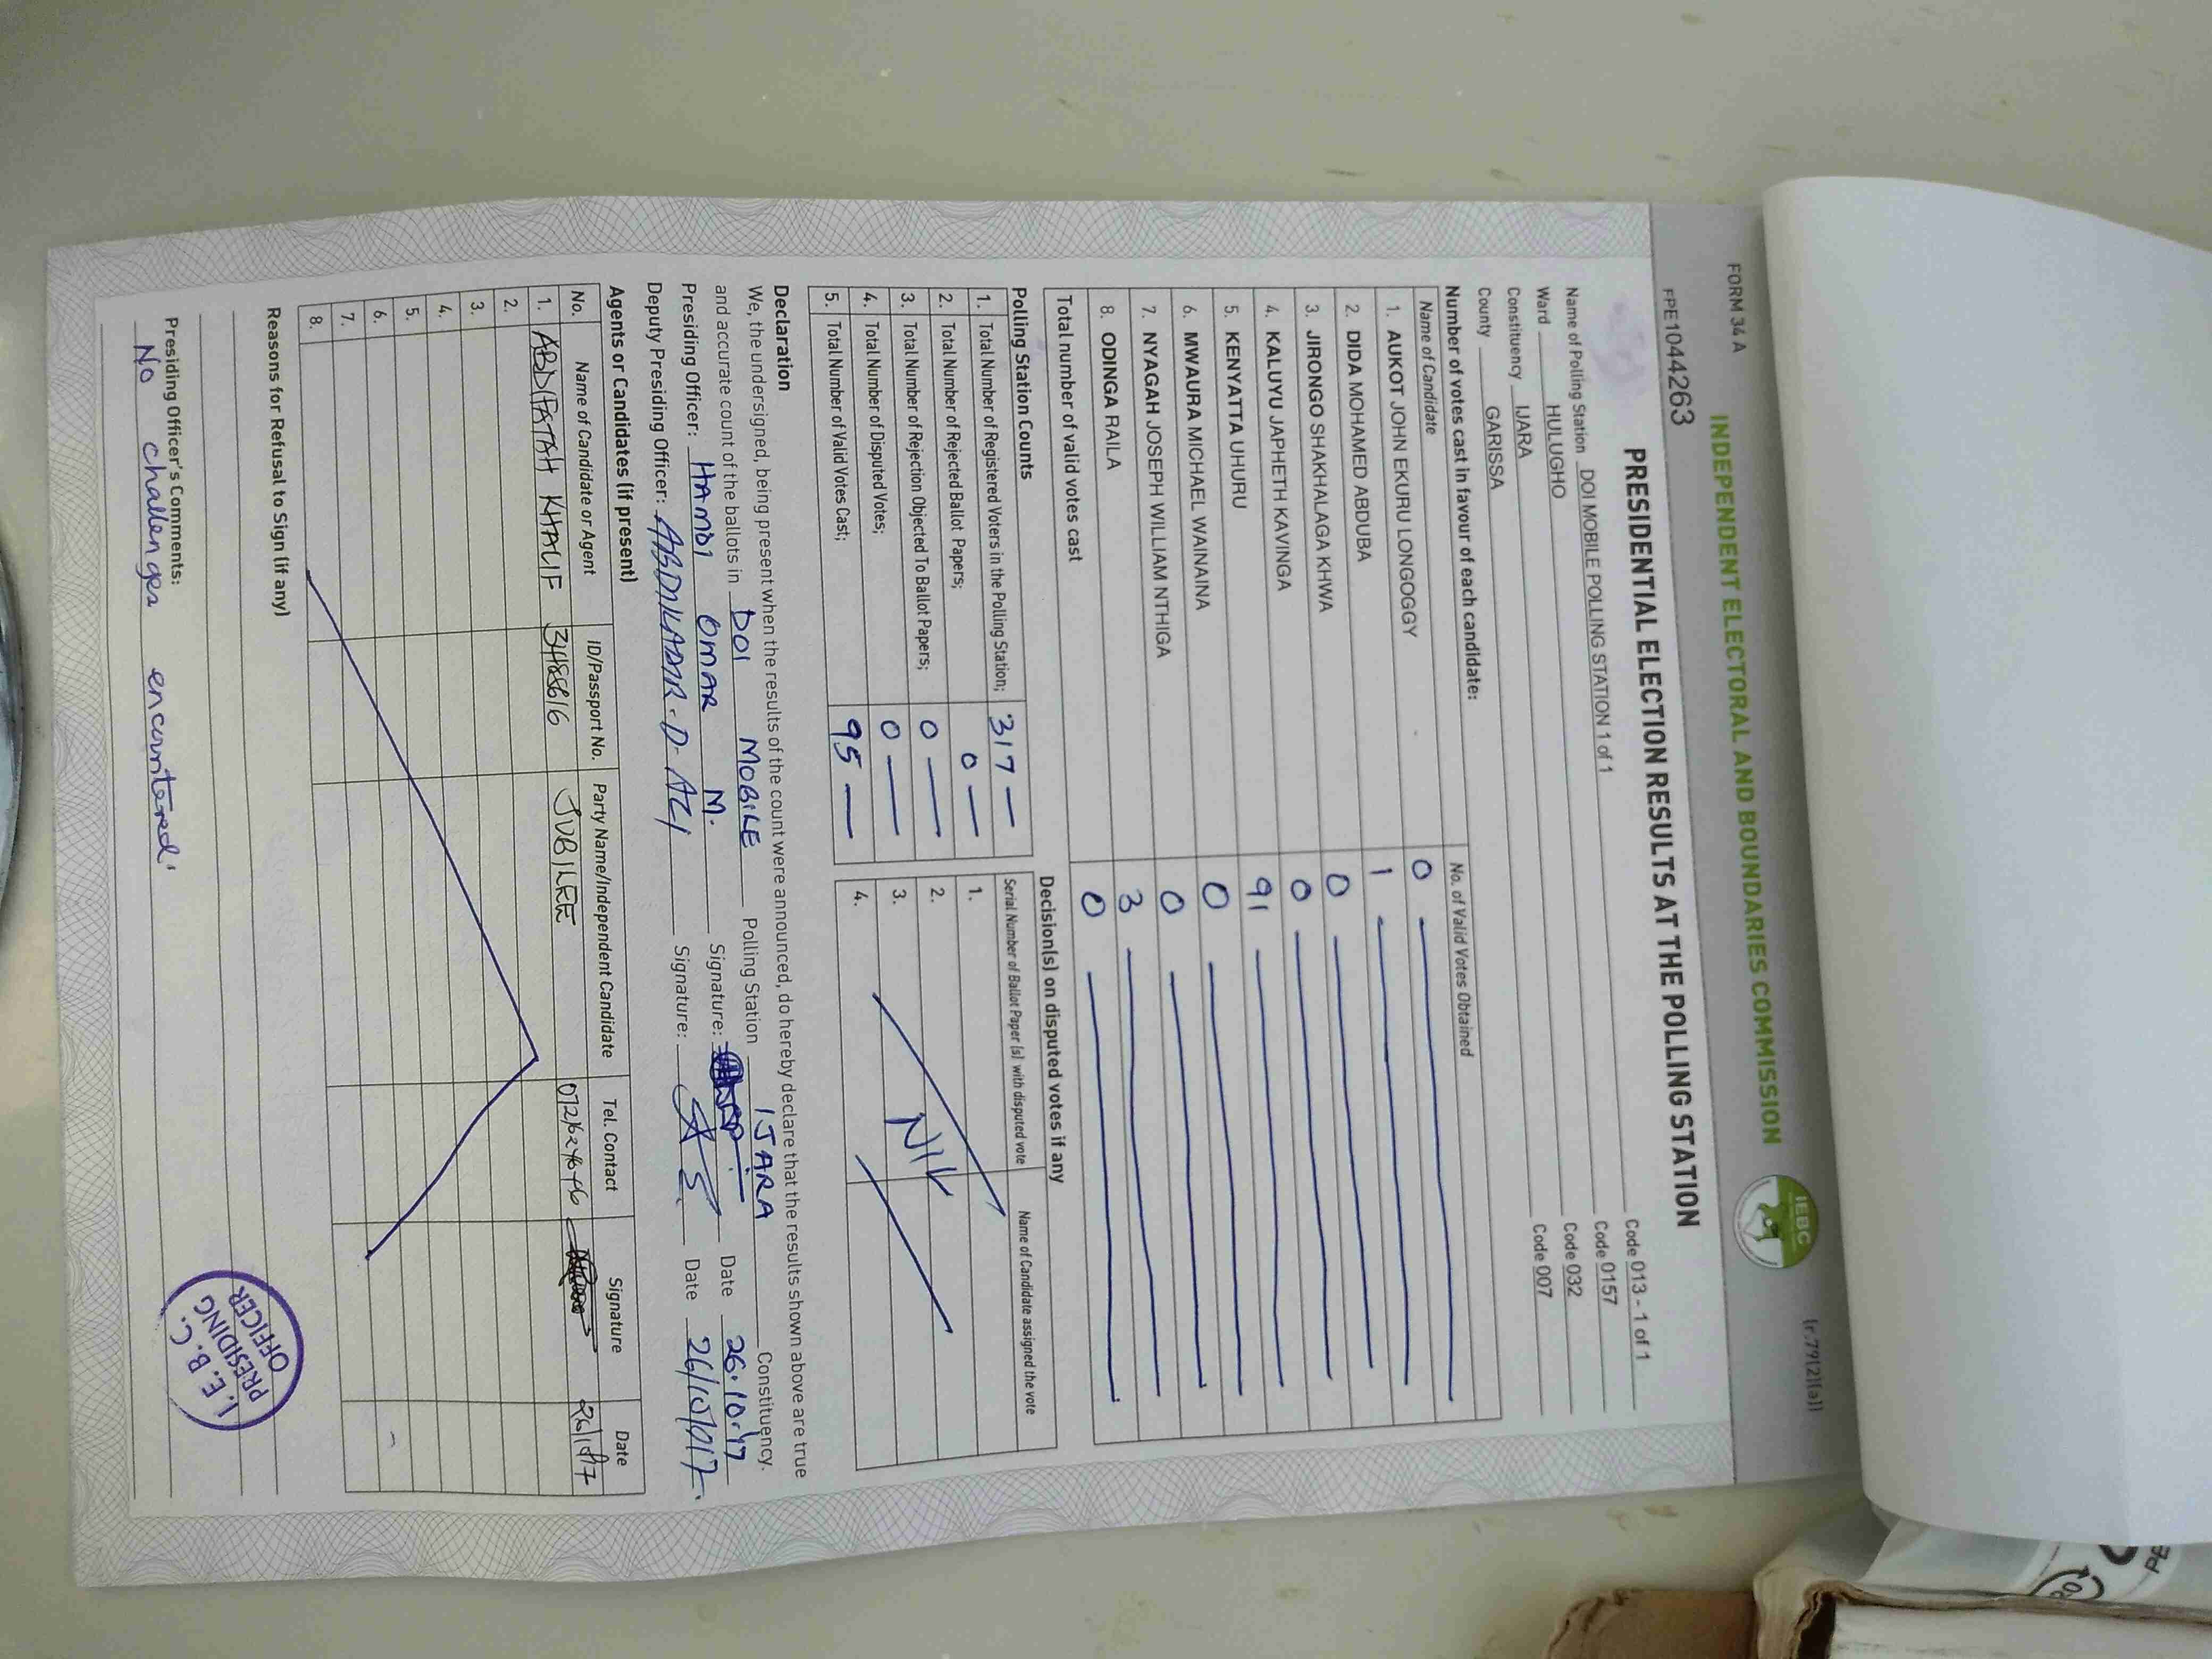 FORM 34 A
(r.79(2)(a))
INDEPENDENT ELECTORAL AND BOUNDARIES COMMISSION
IEBC
FPE1044263
PRESIDENTIAL ELECTION RESULTS AT THE POLLING STATION
Name of Polling Station DOI MOBILE POLLING STATION 1 of 1 Code 013 - 1 of 1
Ward HULUGHO Code 0157
Constituency IJARA Code 032
County GARISSA Code 007
Number of votes cast in favour of each candidate:
Name of Candidate No. of Valid Votes Obtained
1. AUKOT JOHN EKURU LONGOGGY 0
2. DIDA MOHAMED ABDUBA 1
3. JIRONGO SHAKHALAGA KHWA 0
4. KALUYU JAPHETH KAVINGA 0
5. KENYATTA UHURU 91
6. MWAURA MICHAEL WAINAINA 0
7. NYAGAH JOSEPH WILLIAM NTHIGA 0
8. ODINGA RAILA 3
Total number of valid votes cast 0
Polling Station Counts
1. Total Number of Registered Voters in the Polling Station; 317
2. Total Number of Rejected Ballot Papers; 0
3. Total Number of Rejection Objected To Ballot Papers; 0
4. Total Number of Disputed Votes; 0
5. Total Number of Valid Votes Cast; 95
Decision(s) on disputed votes if any
Serial Number of Ballot Paper (s) with disputed vote Name of Candidate assigned the vote
1.
2.
3. NIL
4.
Declaration
We, the undersigned, being present when the results of the count were announced, do hereby declare that the results shown above are true
and accurate count of the ballots in DOI MOBILE Polling Station IJARA Constituency.
Presiding Officer: HAMDI OMAR M. Signature: Date 26.10.17
Deputy Presiding Officer: ABDIKADIR . D. ALI Signature: Date 26/10/017
Agents or Candidates (if present)
No. Name of Candidate or Agent ID/Passport No. Party Name/Independent Candidate Tel. Contact Signature Date
1. ABDIFATAH KHALIF JUBILEE
2.
3.
4.
5.
6.
7.
8.
Reasons for Refusal to Sign (if any)
Presiding Officer's Comments:
No challenges encountered
I. E. B. C.
PRESIDING
OFFICER